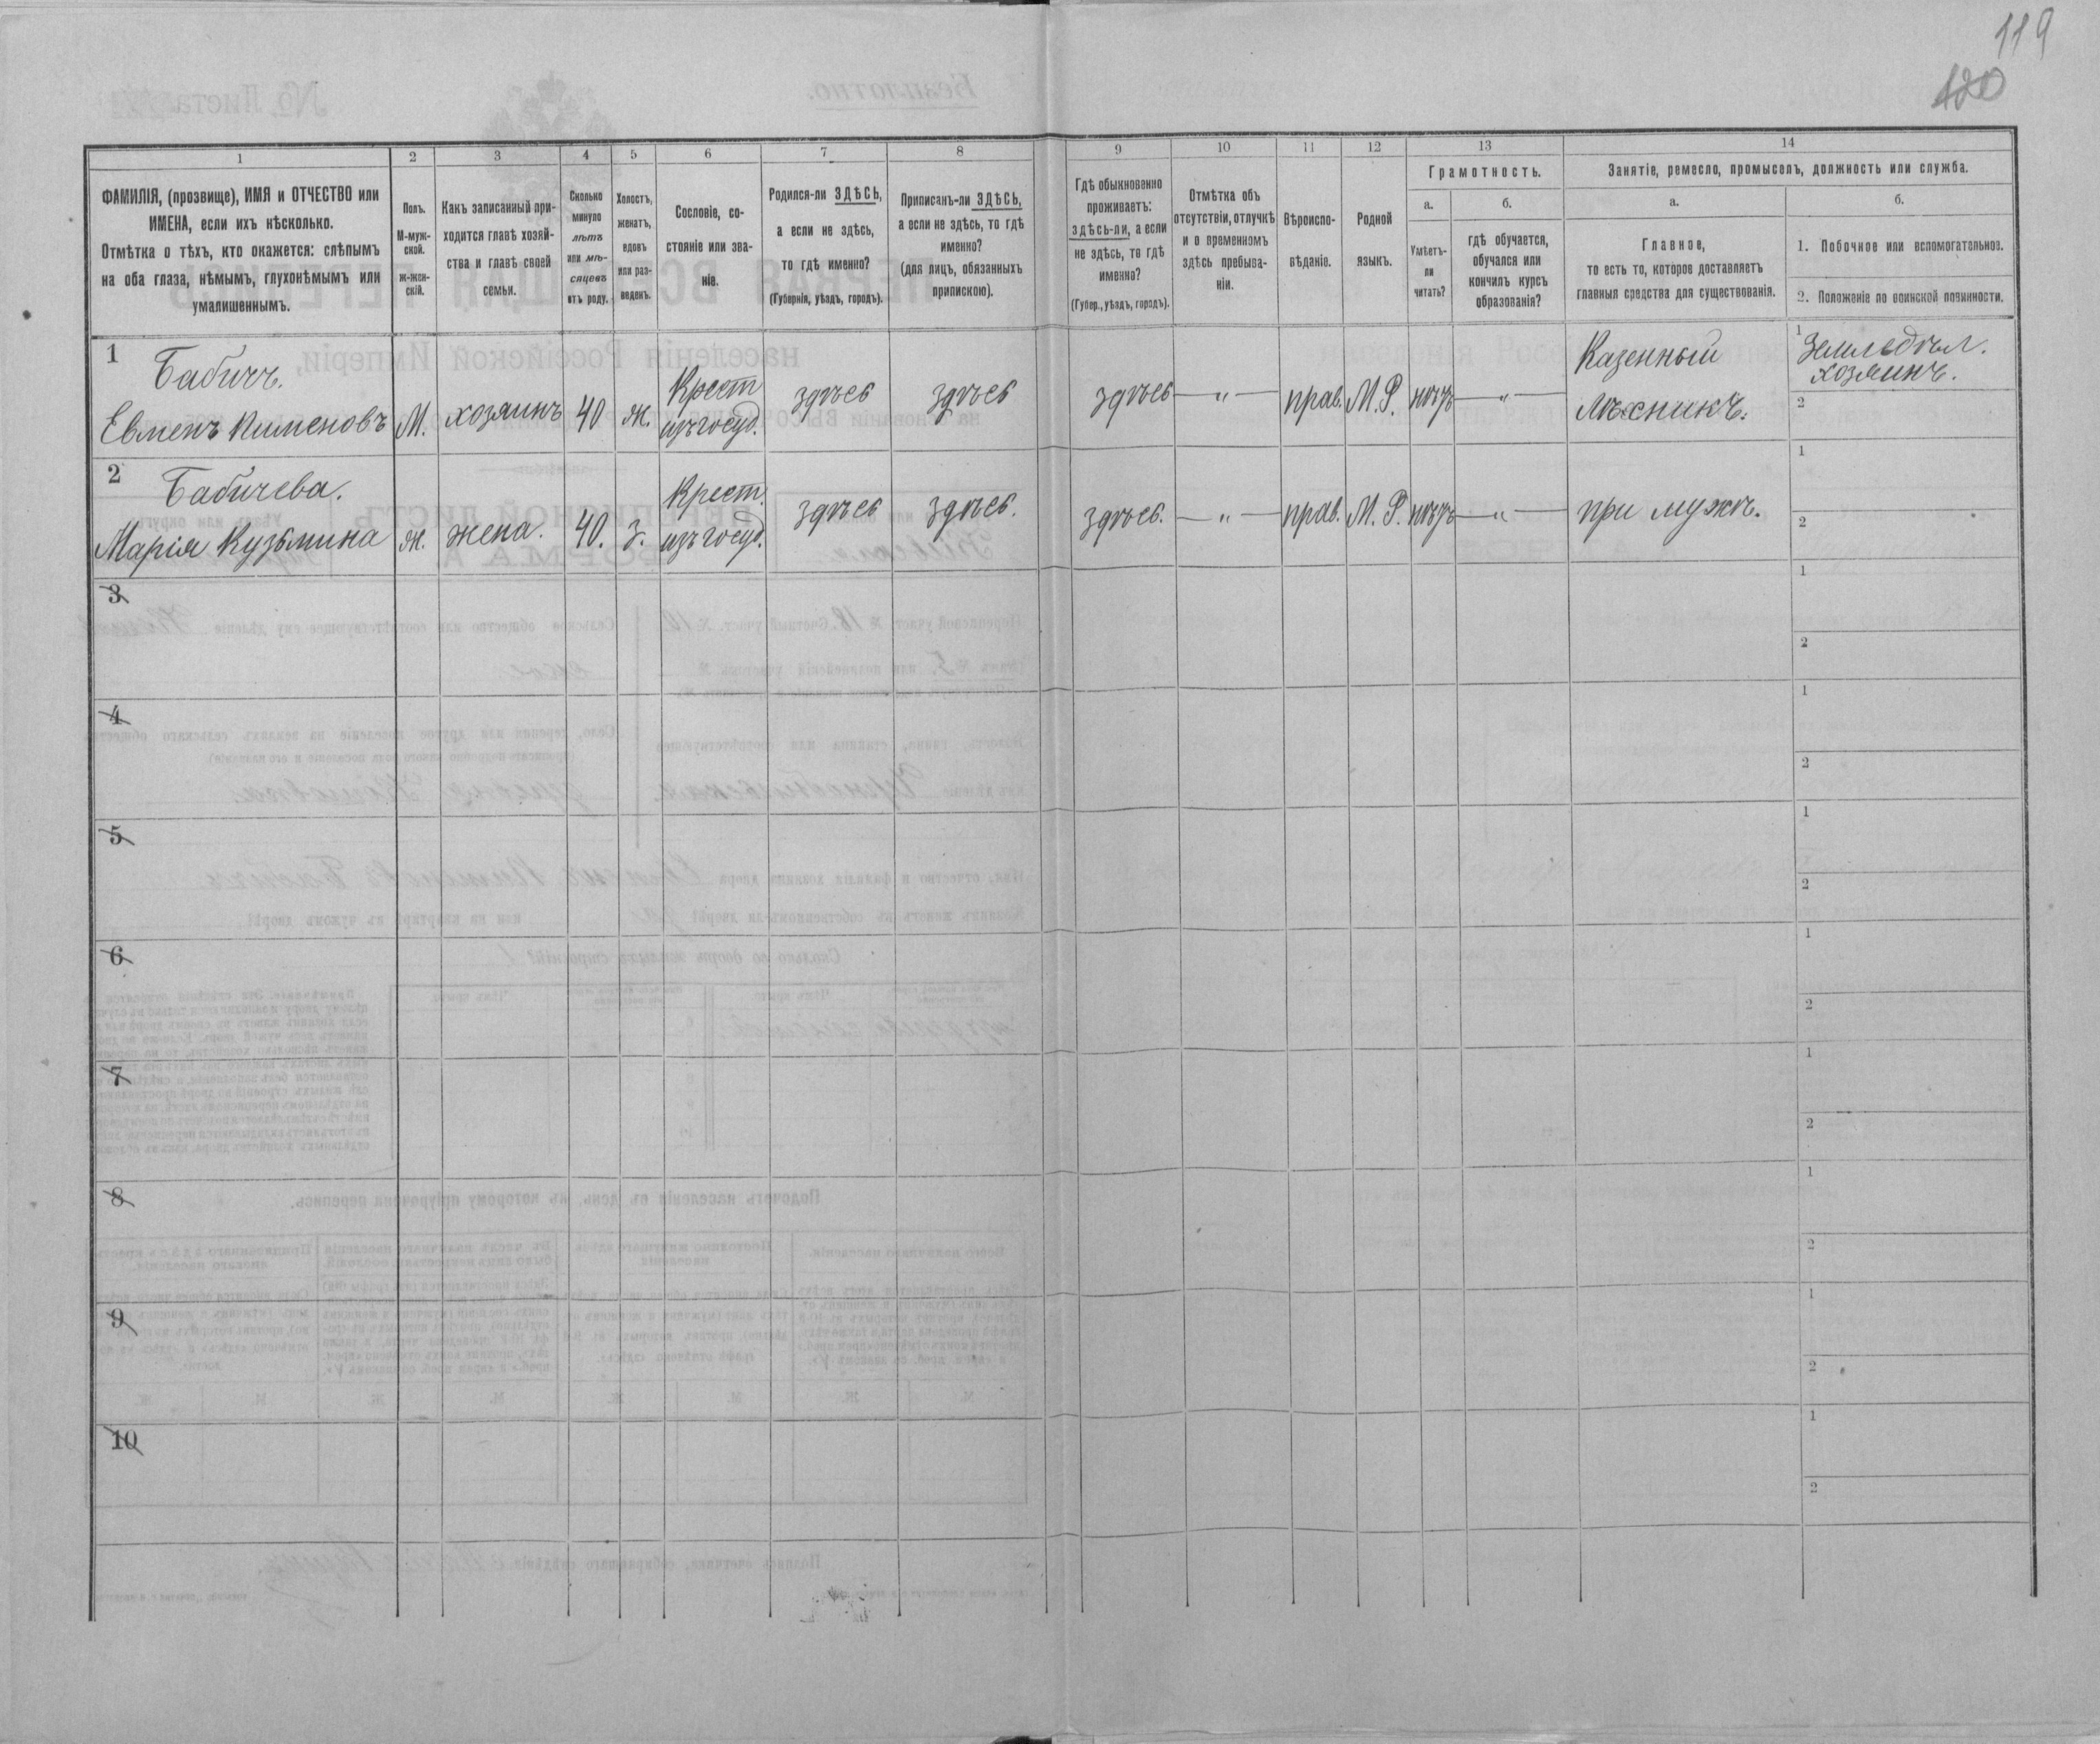 119
120
1
ФАМИЛІЯ, (прозвище), ИМЯ и ОТЧЕСТВО или
ИМЕНА, если ихъ нѣсколько.
Отмѣтка о тѣхъ, кто окажется: слѣпымъ
на оба глаза, нѣмымъ, глухонѣмымъ или
умалишеннымъ.
2
Полъ.
М-муж-
ской.
ж-жен-
скій.
3
Какъ записанный при-
ходится главѣ хозяй-
ства и главѣ своей
семьи.
4
Сколько
минуло
лѣтъ
или мѣ-
сяцевъ
отъ роду.
5
Холостъ,
женатъ,
вдовъ
или раз-
веденъ.
6
Сословіе, со-
стояніе или зва-
ніе.
7
Родился-ли ЗДѢСЬ,
а если не здѣсь,
то гдѣ именно?
(Губернія, уѣздъ, городъ).
8
Приписанъ-ли ЗДѢСЬ,
а если не здѣсь, то гдѣ
именно?
(для лицъ, обязанныхъ
припискою).
9
Гдѣ обыкновенно
проживаетъ:
здѣсь-ли, а если
не здѣсь, то гдѣ
именно?
(Губер., уѣздъ, городъ).
10
Отмѣтка объ
отсутствіи, отлучкѣ
и о временномъ
здѣсь пребыва-
ніи.
11
Вѣроиспо-
вѣданіе.
12
Родной
языкъ.
13
Грамотность.
а.
Умѣетъ-
ли
читать?
б.
гдѣ обучается,
обучался или
кончилъ курсъ
образованія?
14
Занятіе, ремесло, промыселъ, должность или служба.
а.
Главное,
то есть то, которое доставляетъ
главныя средства для существованія.
б.
1. Побочное или вспомогательное.
2. Положеніе по воинской повинности.
1
Бабичъ.
Евменъ Пименовъ
М.
хозяинъ
40
ж.
Крест
изъ госуд.
здѣсь
здѣсь
здѣсь
— „ —
прав.
М. Р.
нѣтъ
— „ —
Казенный
лѣсникъ.
1
Земледѣл.
хозяинъ.
2
2
Бабичева.
Марія Кузьмина
ж.
жена.
40.
з.
Крест.
изъ госуд.
здѣсь
здѣсь.
здѣсь.
— „ —
прав.
М. Р.
нѣтъ
— „ —
при мужѣ.
1
2
3
1
2
4
1
2
5
1
2
6
1
2
7
1
2
8
1
2
9
1
2
10
1
2